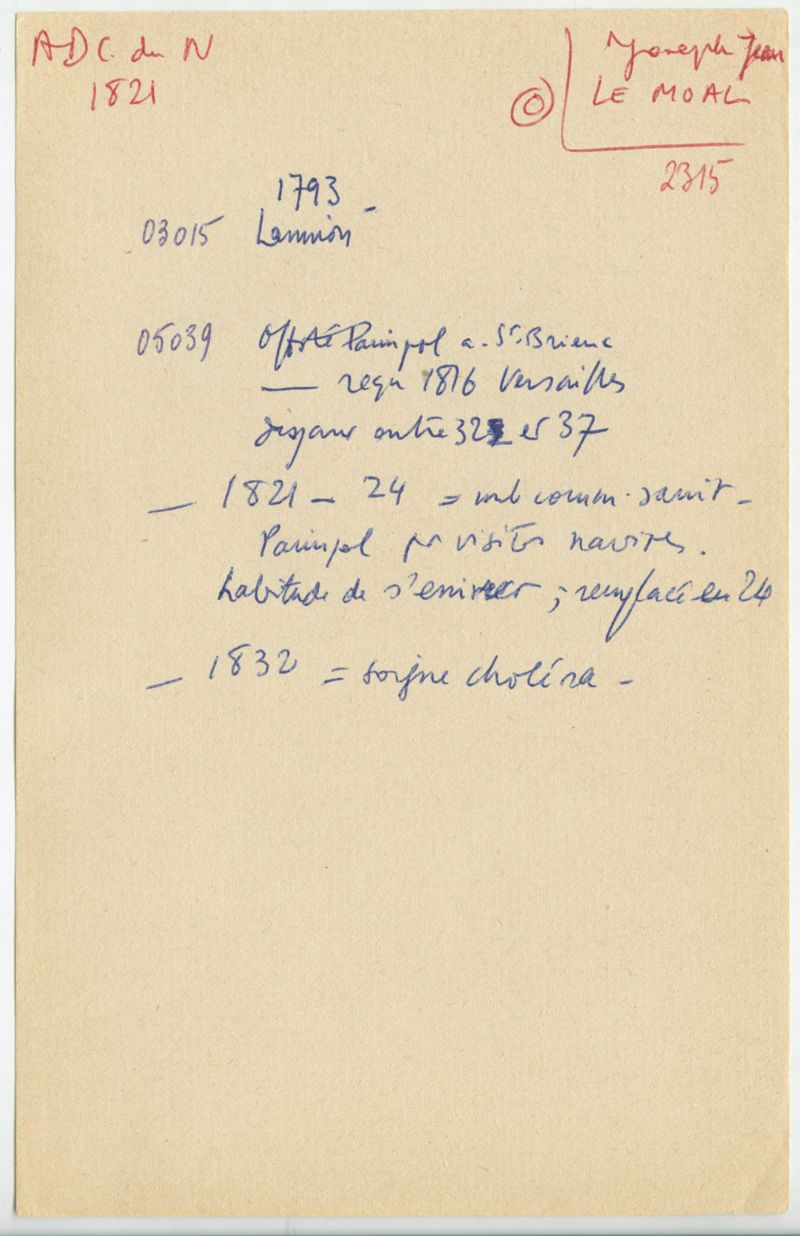 ADC. du N
1821
Joseph Jean
LE MOAL
2315
1793
03015 Lannion -
05039 Paimpol a. St. Brieuc
— reçu 1816 Versailles
disparu entre 32 et 37
— 1821 - 24 = mb comm. sanit -
Paimpol pr visites navires.
habitude de s'enivrer ; remplacé en 24
— 1832 = soigne choléra -